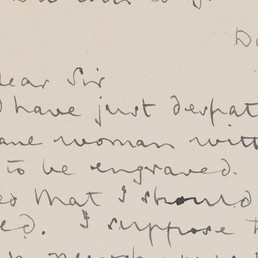 Do
ear Sir
have just despat
ane woman with
to be engraved.
that I should
ed. I suppose t